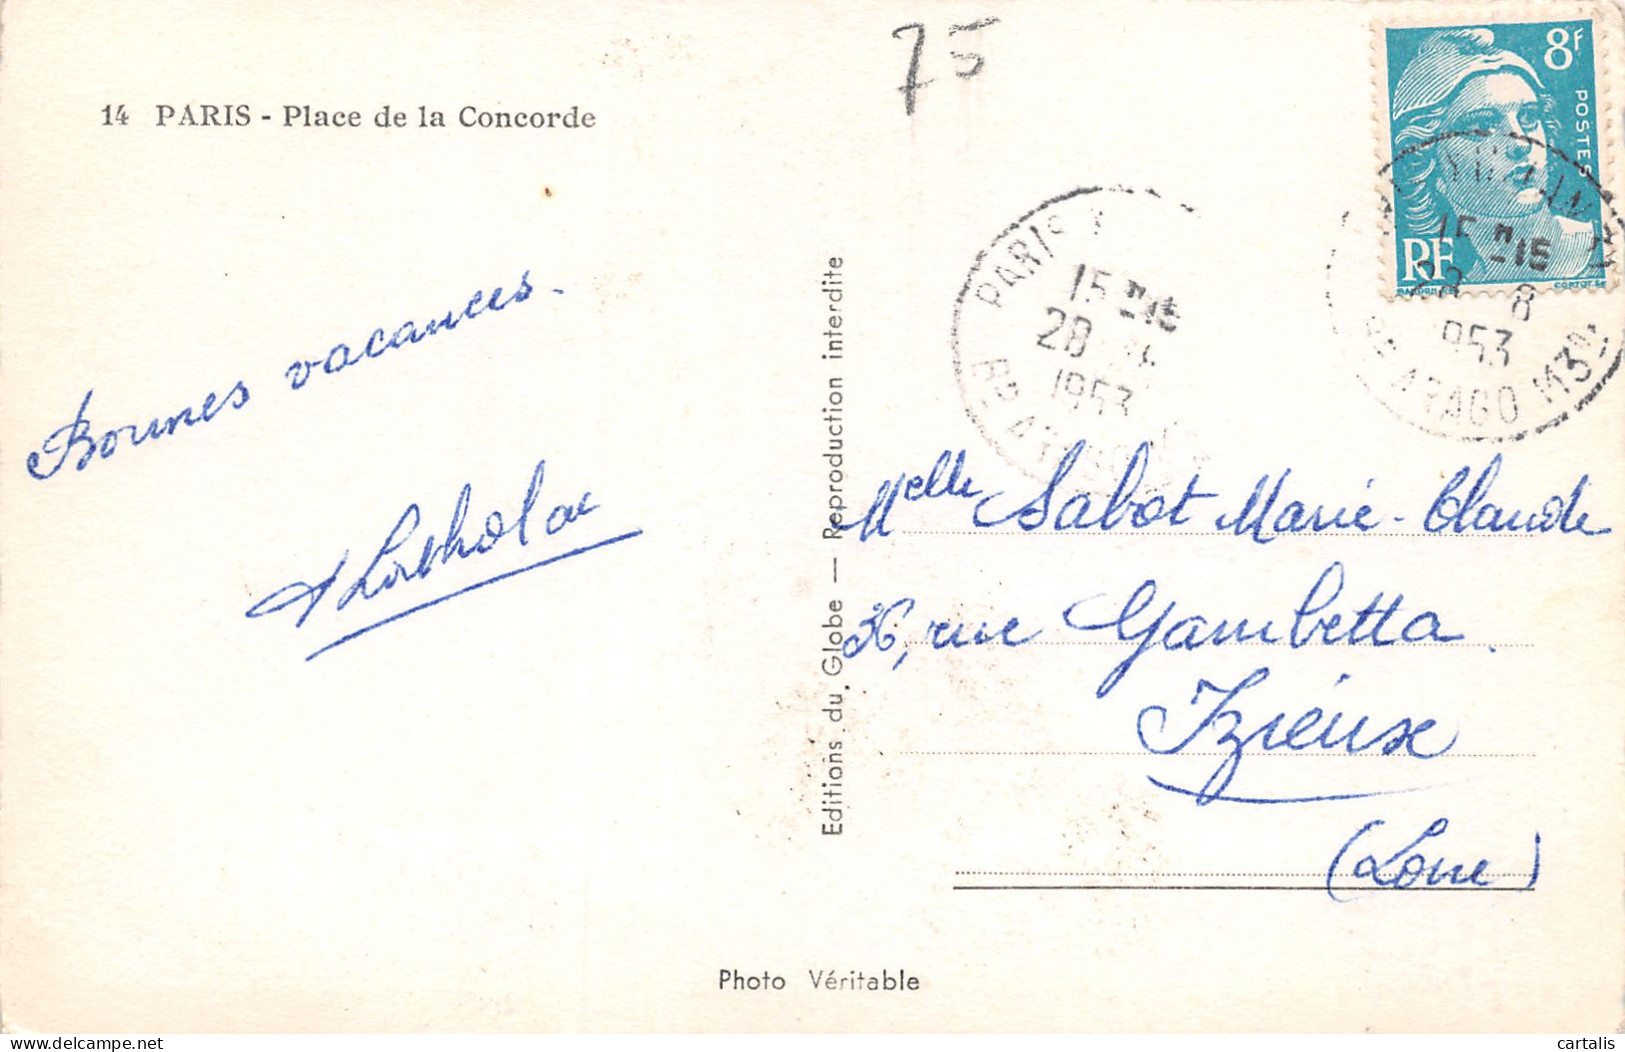 14 PARIS - Place de la Concorde
75
8F
POSTES
RF
Bonnes vacances.
Editions du Globe — Reproduction interdite
PARIS
15
28
1953
15
8
953
ARAGO
Melle Sabot Marie-Claude
36, rue Gambetta.
Izieux
(Loire)
Photo Véritable
delcampe.net
cartalis